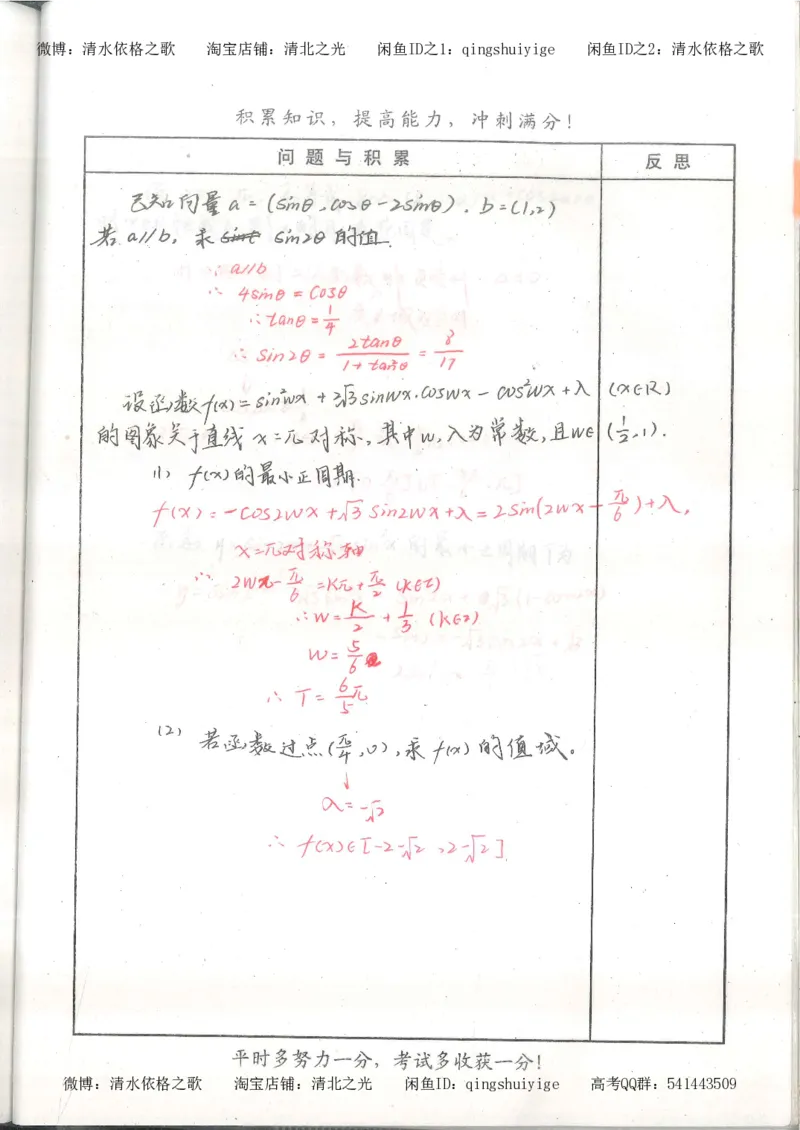 微博：清水依格之歌 淘宝店铺：清北之光 闲鱼ID之1：qingshuiyige 闲鱼ID之2：清水依格之歌
积累知识，提高能力，冲刺满分！
问题与积累 反思
已知向量a=(sinθ,cosθ-2sinθ),b=(1,2)
若a//b，求sin2θ的值.
∵a//b
∴4sinθ=cosθ
∴tanθ=1/4
∴sin2θ=2tanθ/(1+tan²θ)=8/17
设函数f(x)=sin²wx+2√3sinwx·coswx-cos²wx+λ (x∈R)
的图象关于直线x=π对称,其中w,λ为常数,且w∈(1/2,1).
(1) f(x)的最小正周期.
f(x)=-cos2wx+√3sin2wx+λ=2sin(2wx-π/6)+λ,
x=π对称轴
∴2wπ-π/6=kπ+π/2 (k∈Z)
∴w=k/2+1/3 (k∈Z)
w=5/6
∴T=6/5π
(2) 若函数过点(π/4,0),求f(x)的值域。
↓
λ=-√2
∴f(x)∈[-2-√2,2-√2]
平时多努力一分，考试多收获一分！
微博：清水依格之歌 淘宝店铺：清北之光 闲鱼ID：qingshuiyige 高考QQ群：541443509